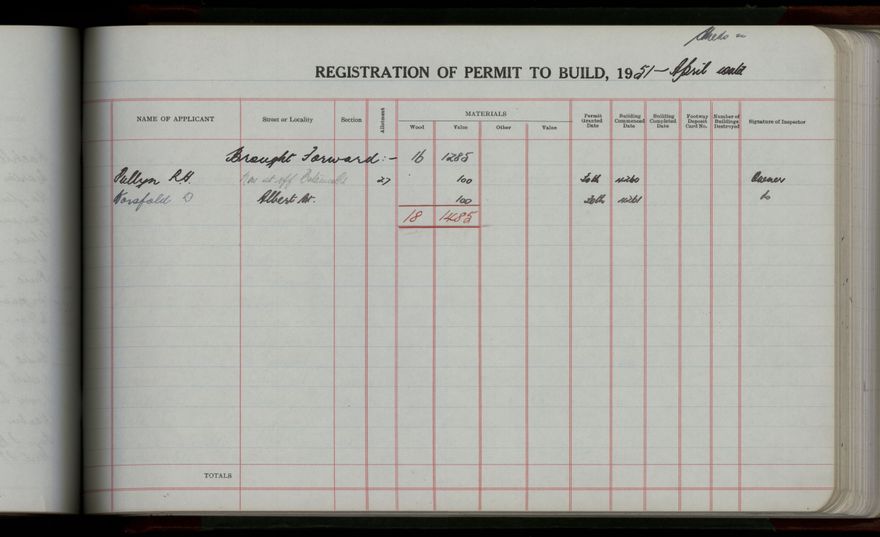 REGISTRATION OF PERMIT TO BUILD, 1951 - April
NAME OF APPLICANT Street or Locality Section Allotment MATERIALS Permit Granted Date Building Commenced Date Building Completed Date Footway Deposit Card No. Number of Buildings Destroyed Signature of Inspector
Wood Value Other Value
Brought Forward :- 16 1285
Pullyn R.H. off 27 100 30th Owner
Worsfold D Albert St. 100 30th do
18 1485
TOTALS